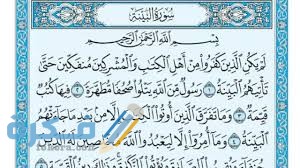 سُورَةُ البَيِّنَة
بِسْمِ اللَّهِ الرَّحْمَٰنِ الرَّحِيمِ
لَمْ يَكُنِ الَّذِينَ كَفَرُوا مِنْ أَهْلِ الْكِتَابِ وَالْمُشْرِكِينَ مُنفَكِّينَ حَتَّىٰ
تَأْتِيَهُمُ الْبَيِّنَةُ ١ رَسُولٌ مِّنَ اللَّهِ يَتْلُوا صُحُفًا مُّطَهَّرَةً ٢ فِيهَا كُتُبٌ
قَيِّمَةٌ ٣ وَمَا تَفَرَّقَ الَّذِينَ أُوتُوا الْكِتَابَ إِلَّا مِن بَعْدِ مَا جَاءَتْهُمُ
الْبَيِّنَةُ ٤ وَمَا أُمِرُوا إِلَّا لِيَعْبُدُوا اللَّهَ مُخْلِصِينَ لَهُ الدِّينَ